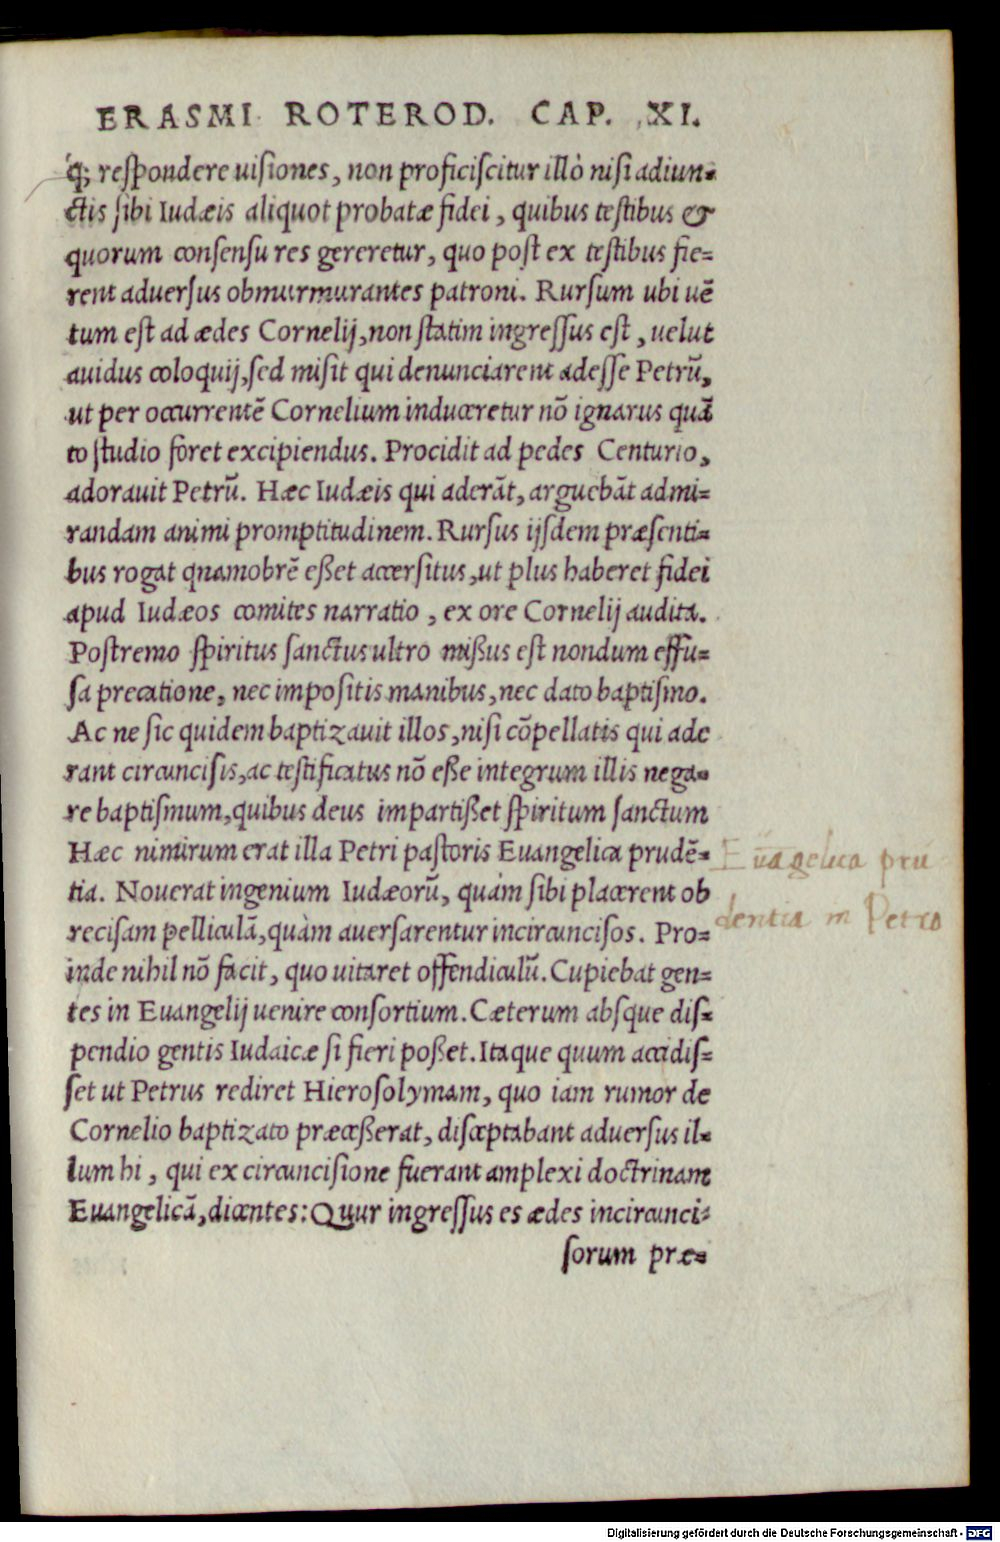 ERASMI ROTEROD. CAP. XI.
q́; respondere uisiones, non proficiscitur illò nisi adiun=
ctis sibi Iudæis aliquot probatæ fidei, quibus testibus &
quorum consensu res gereretur, quo post ex testibus fie=
rent aduersus obmurmurantes patroni. Rursum ubi uē
tum est ad ædes Cornelij, non statim ingressus est, uelut
auidus coloquij, sed misit qui denunciarent adesse Petrū,
ut per occurrentē Cornelium induceretur nō ignarus quā
to studio foret excipiendus. Procidit ad pedes Centurio,
adorauit Petrū. Hæc Iudæis qui aderāt, arguebāt admi=
randam animi promptitudinem. Rursus ijsdem præsenti=
bus rogat quamobrē eßet accersitus, ut plus haberet fidei
apud Iudæos comites narratio, ex ore Cornelij audita.
Postremo spiritus sanctus ultro mißus est nondum effu=
sa precatione, nec impositis manibus, nec dato baptismo.
Ac ne sic quidem baptizauit illos, nisi cōpellatis qui ade
rant circuncisis, ac testificatus nō eße integrum illis nega=
re baptismum, quibus deus impartißet spiritum sanctum
Hæc nimirum erat illa Petri pastoris Euangelica prudē=
tia. Nouerat ingenium Iudæorū, quàm sibi placerent ob
recisam pelliculā, quàm auersarentur incircuncisos. Pro=
inde nihil nō facit, quo uitaret offendiculū. Cupiebat gen=
tes in Euangelij uenire consortium. Cæterum absque dis=
pendio gentis Iudaicæ si fieri poßet. Itaque quum accidis=
set ut Petrus rediret Hierosolymam, quo iam rumor de
Cornelio baptizato præceßerat, disceptabant aduersus il=
lum hi, qui ex circuncisione fuerant amplexi doctrinam
Euangelicā, dicentes: Quur ingressus es ædes incircunci=
sorum præ=
Euāgelica prū
dentia in Petro
Digitalisierung gefördert durch die Deutsche Forschungsgemeinschaft - DFG